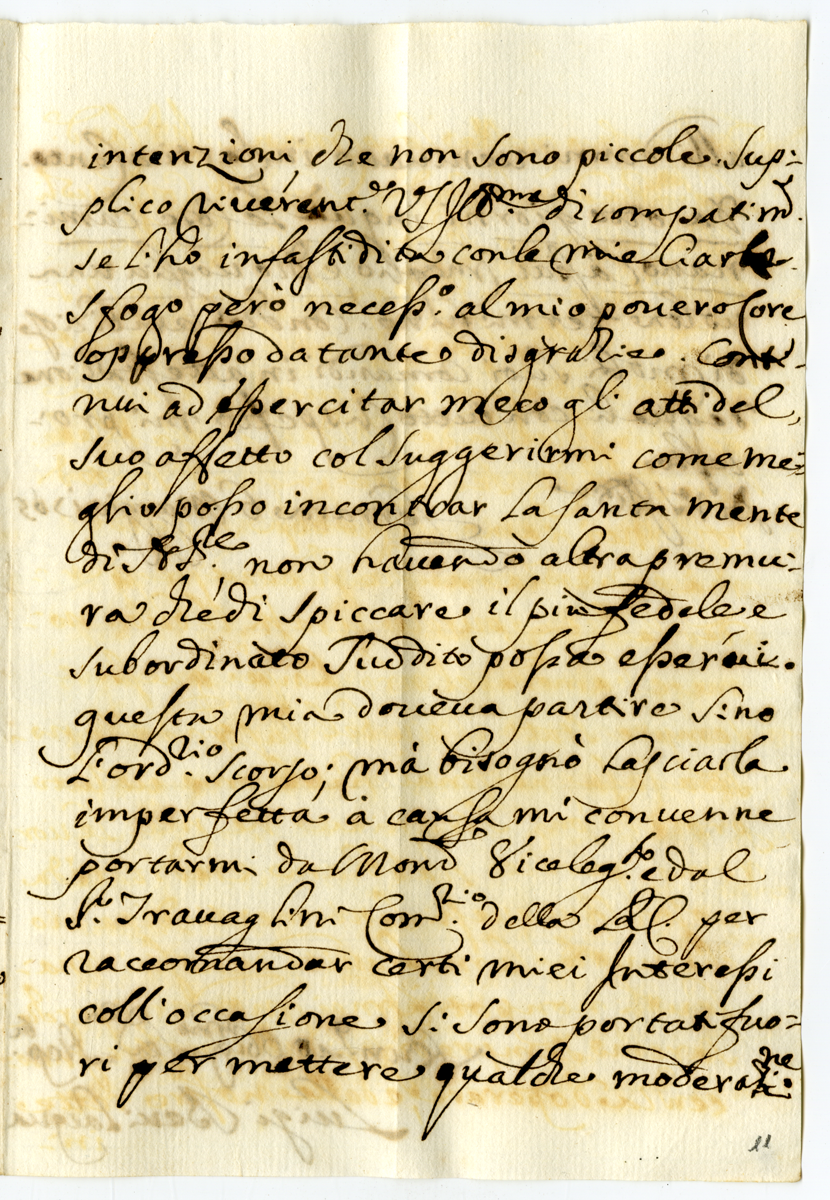 intenzioni che non sono piccole. Sup=
plico riverent.e VS Ill.ma di compatirm.
se l'hò infastidita con le mie Ciarle.
sfogo però necess.o al mio povero Core
oppresso da tante disgrazie. Conti=
nui ad essercitar meco gli atti del
suo affetto col suggerirmi come me=
glio posso incontrar la santa mente
di non havendo altra premu=
ra che di spiccare il più fedele e
subordinato Suddito possa esservi.
questa mia doveva partire sino
l'ord.rio scorso; mà bisognò lasciarla
imperfetta à causa mi convenne
portarmi da Mons.r Viceleg.to e dal
S.r Travaglini Com.rio della per
raccomandar certi miei Interessi
coll'occasione si sono portati fuo=
ri per mettere qualche moderaz.ne
11